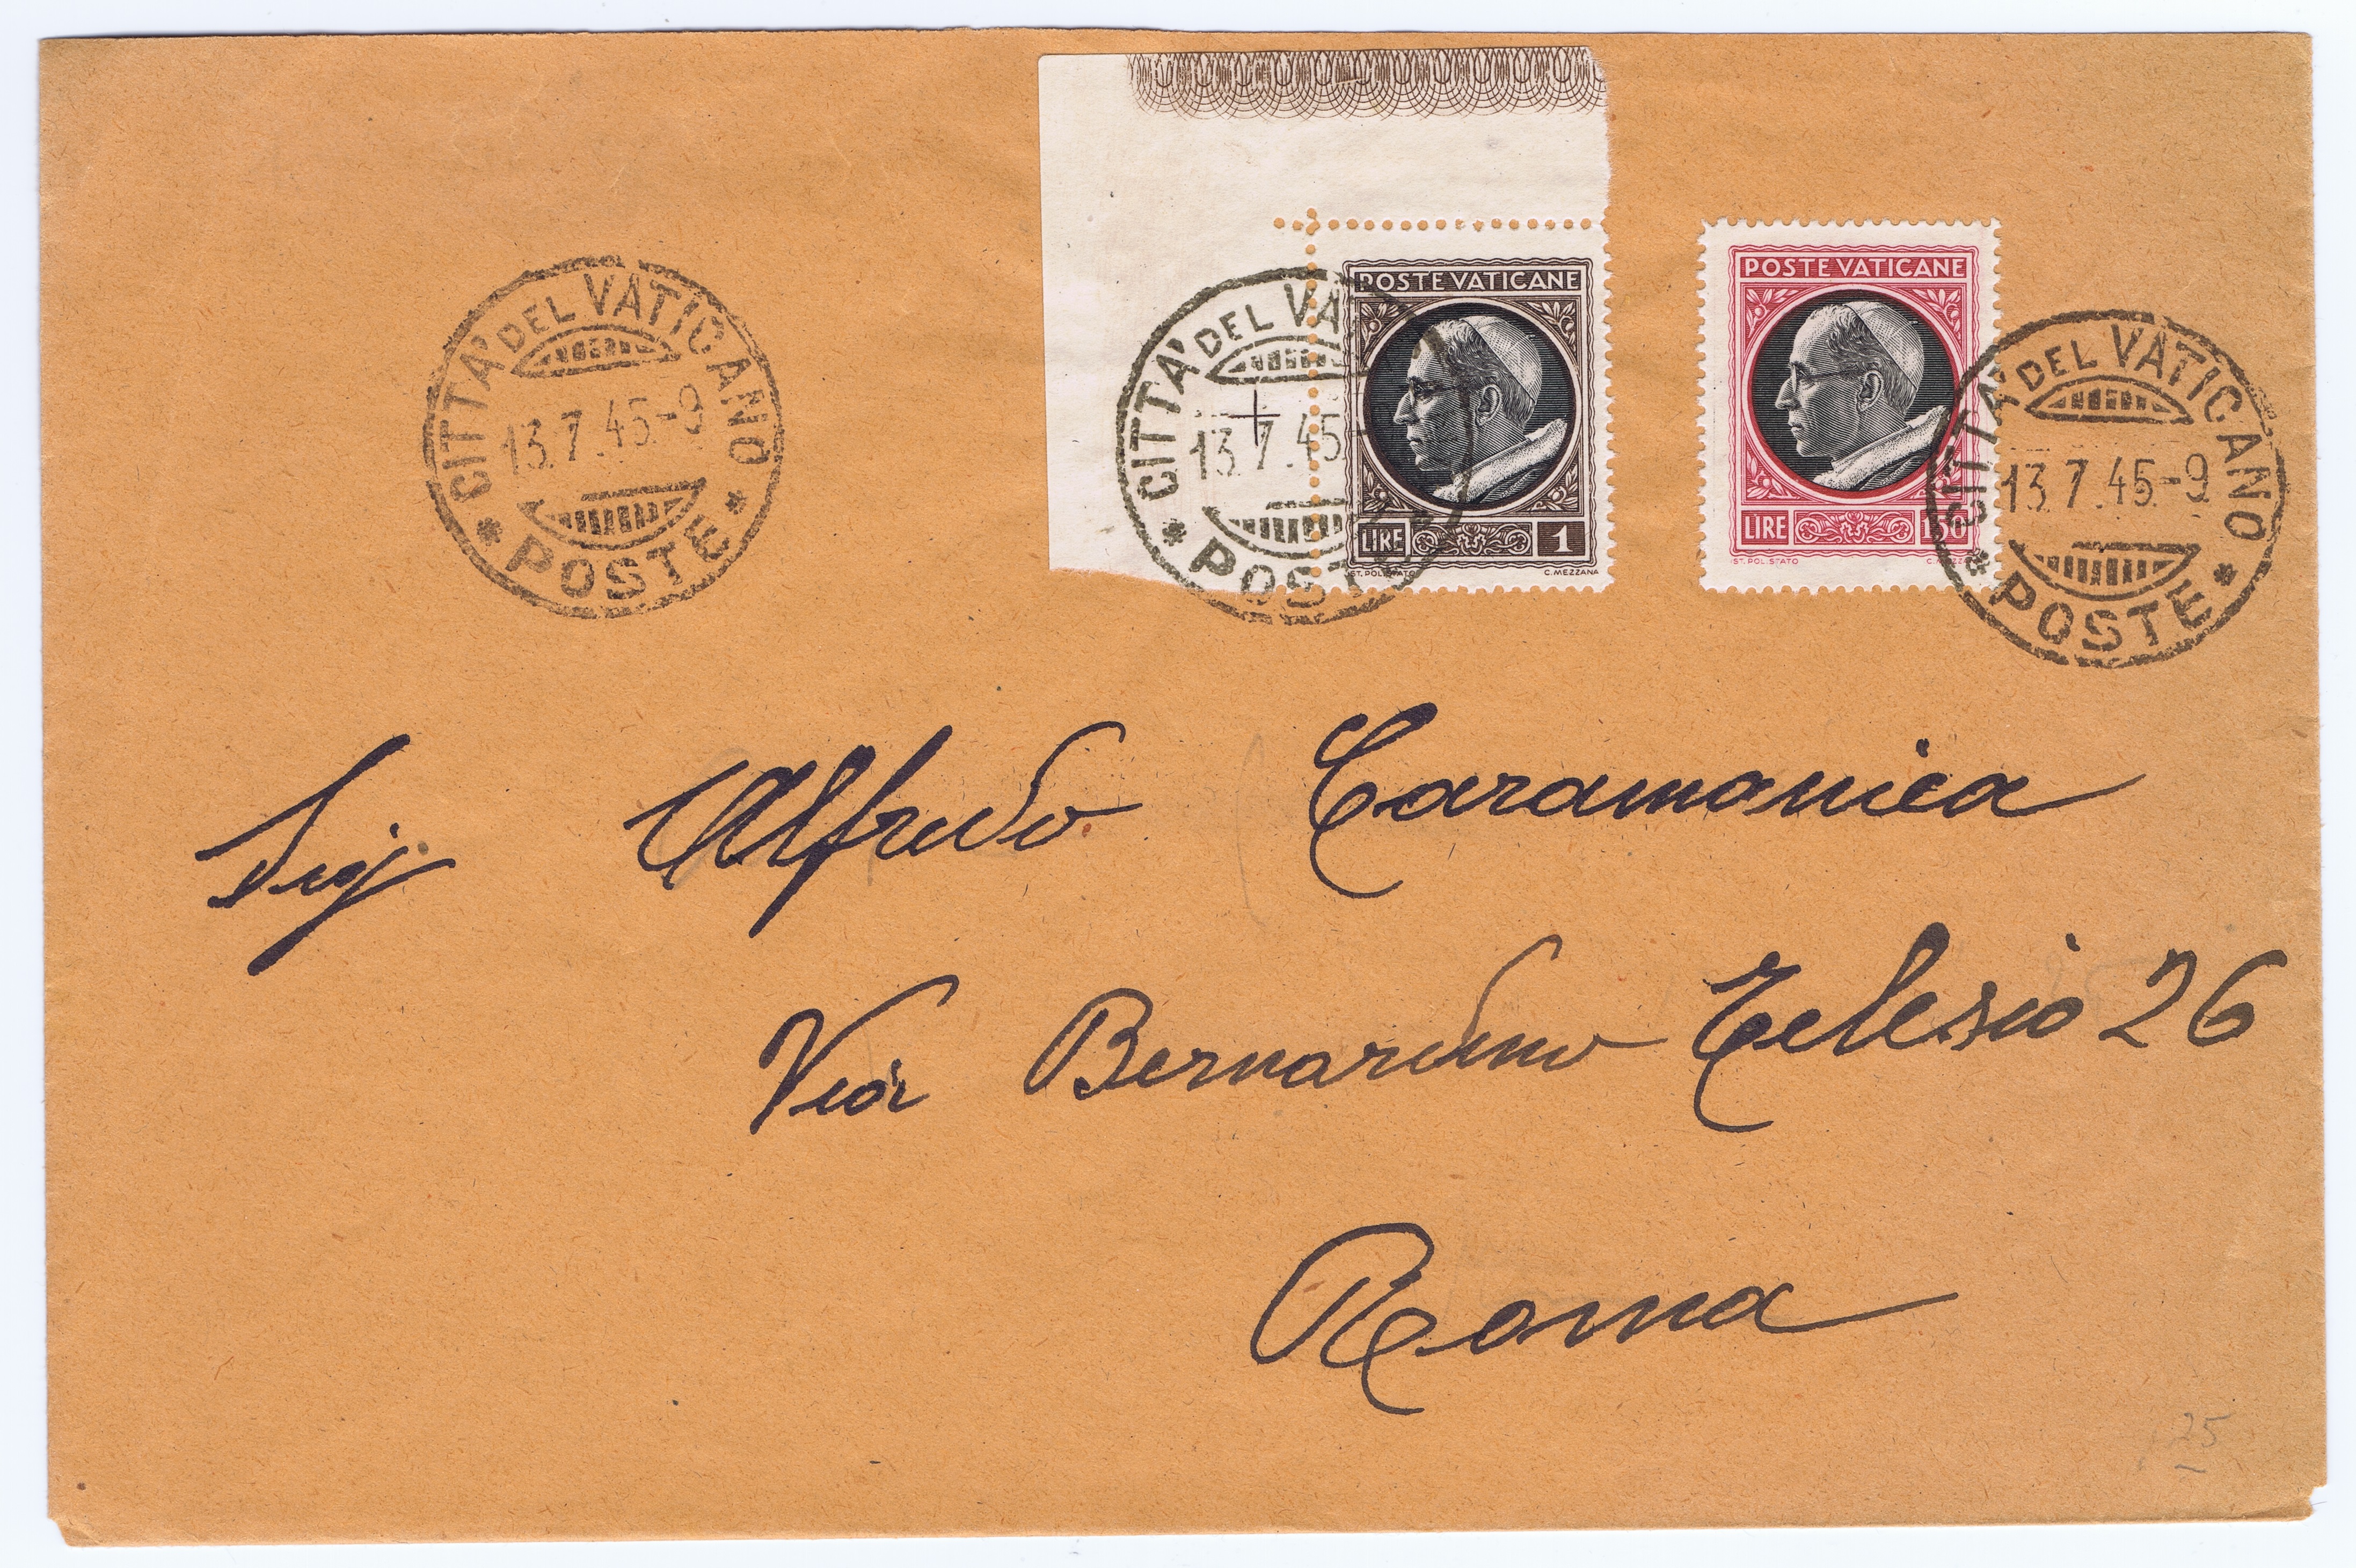 CITTA' DEL VATICANO
13.7.45-9
* POSTE *
CITTA' DEL VA
13.7.45-
* POSTE
POSTE VATICANE
LIRE 1
IST. POL. STATO C. MEZZANA
POSTE VATICANE
LIRE 1,50
IST. POL. STATO C. MEZZANA
CITTA' DEL VATICANO
13.7.45-9
* POSTE *
Sig. Alfredo Caramanica
Via Bernardino Telesio 26
Roma
25